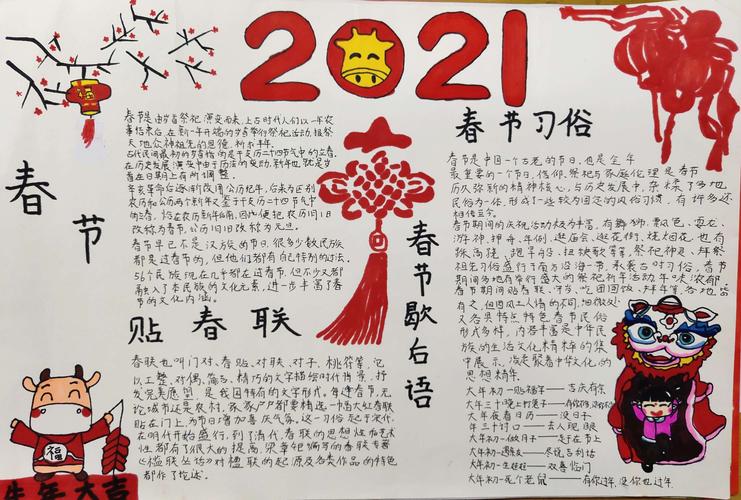 2021
春节
春节是由岁首祭祀演变而来,上古时代人们以一年农
事结束后,在新一年开端的岁首举行祭祀活动,报祭
天地众神祖先的恩德,祈求丰年。
古代民间最初的岁首指的是干支历二十四节气中的立春,
在历史发展演变中由于历法的变动,新年也就是岁
首在日期上有所调整。
年亥革命后逐渐改用公历纪年,后来为区别
农历和公历两个新年又鉴于干支历二十四节气中
春节早已不是汉族的节日,很多少数民族
都是过春节的,但他们都有自己特别的过法。
56个民族现在几乎都在过春节,但不少又都
融入了本民族的文化元素,进一步丰富了春
节的文化内涵。
贴春联
春联也叫门对、春贴、对联、对子、桃符等,它
以工整、对偶、简洁、精巧的文字描绘时代背景,抒
发完美愿望,是我国特有的文学形式。每逢春节,无
论城市还是农村,家家户户都要精选一幅大红春联
贴在门上,为节日增加喜庆气氛。这一习俗起于宋代,
在明代开始盛行,到了清代,春联的思想性和艺术
性都有了很大的提高,梁章钜编写的春联专著
《槛联丛话》对楹联的起源及各类作品的特色
都作了论述。
福
牛年大吉
春节歇后语
春节习俗
春节是中国一个古老的节日,也是全年
最重要的一个节日,信仰、祭祀与家庭伦理是春节
历久弥新的精神核心,与历史发展中,杂糅了多地
民俗为一体,形成了一些较为固定的风俗习惯,有许多还
相传至今。
春节期间的庆祝活动极为丰富,有舞狮、飘色、耍龙、
游神、押舟、年例、逛庙会、逛花街、烧烟花,也有
踩高跷、跑旱船、扭秧歌等等。祭祀神灵、拜祭
祖先习俗盛行于南方沿海一带,承袭古时习俗,春节
期间多地有举行盛大的祭祀祈年活动,年味浓郁
春节期间贴春联、守岁、吃团圆饭、拜年等各地皆
有之,但因风土人情的不同,细微处
又各具特点特色,春节民俗
形式多样、内容丰富是中华民
族的生活文化精粹的集
中展示
思想精华
大年初一贴福字——吉庆有余
大年夜看日历——没日子
年三十讨口——丢人现眼
大年初一做月子——赶在节上
大年初一遇亲友——尽说吉利话
大年初一生娃娃——双喜临门
大年初一死个老鼠——有你过年,没你也过年